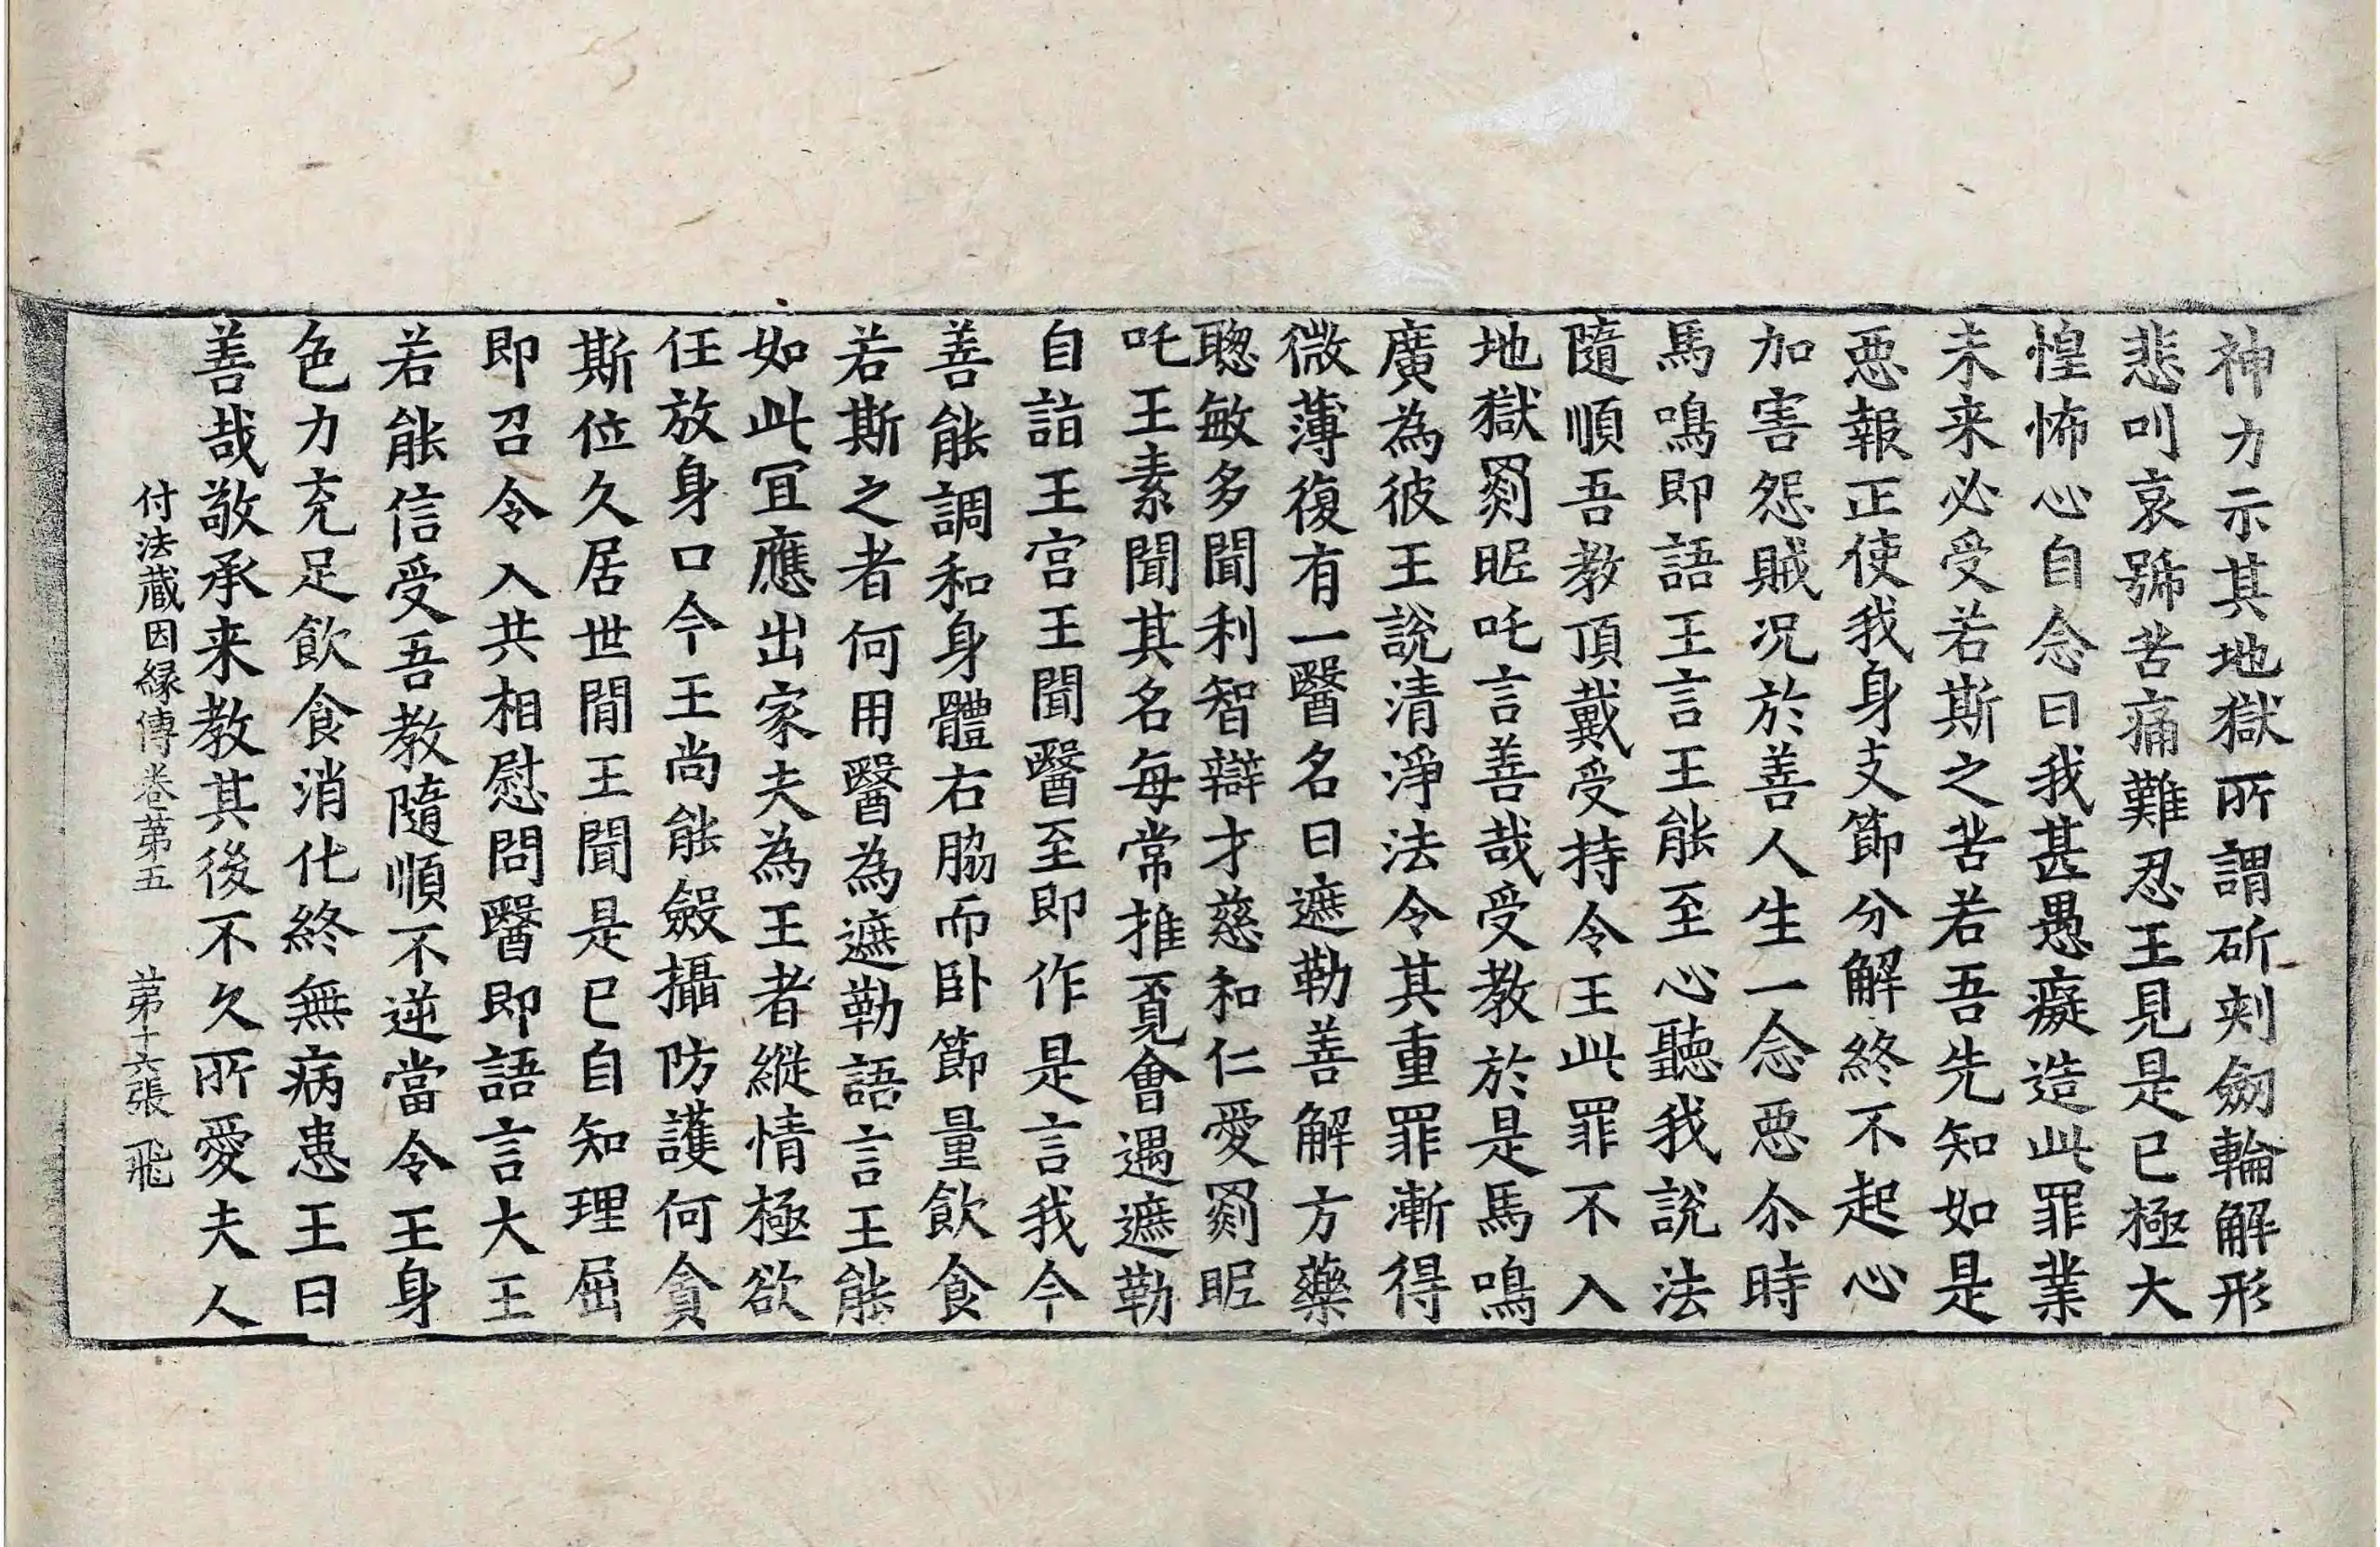 神力示其地獄所謂斫刾劒輪解形
悲叫哀號苦痛難忍王見是已極大
惶怖心自念曰我甚愚癡造此罪業
未来必受若斯之苦若吾先知如是
惡報正使我身支節分解終不起心
加害怨賊况於善人生一念惡尒時
馬鳴即語王言王能至心聽我說法
隨順吾教頂戴受持令王此罪不入
地獄罽昵吒言善哉受教於是馬鳴
廣為彼王說清淨法令其重罪漸得
微薄復有一醫名曰遮勒善解方藥
聦敏多聞利智辯才慈和仁愛罽昵
吒王素聞其名每常推覔會遇遮勒
自詣王宫王聞醫至即作是言我今
善能調和身體右脇而卧節量飲食
若斯之者何用醫為遮勒語言王能
如此冝應出家夫為王者縱情極欲
任放身口今王尚能斂攝防護何貪
斯位久居世間王聞是已自知理屈
即召令入共相慰問醫即語言大王
若能信受吾教隨順不逆當令王身
色力充足飲食消化終無病患王曰
善哉敬承来教其後不久所愛夫人
付法藏因縁傳卷苐五 苐十六張 飛